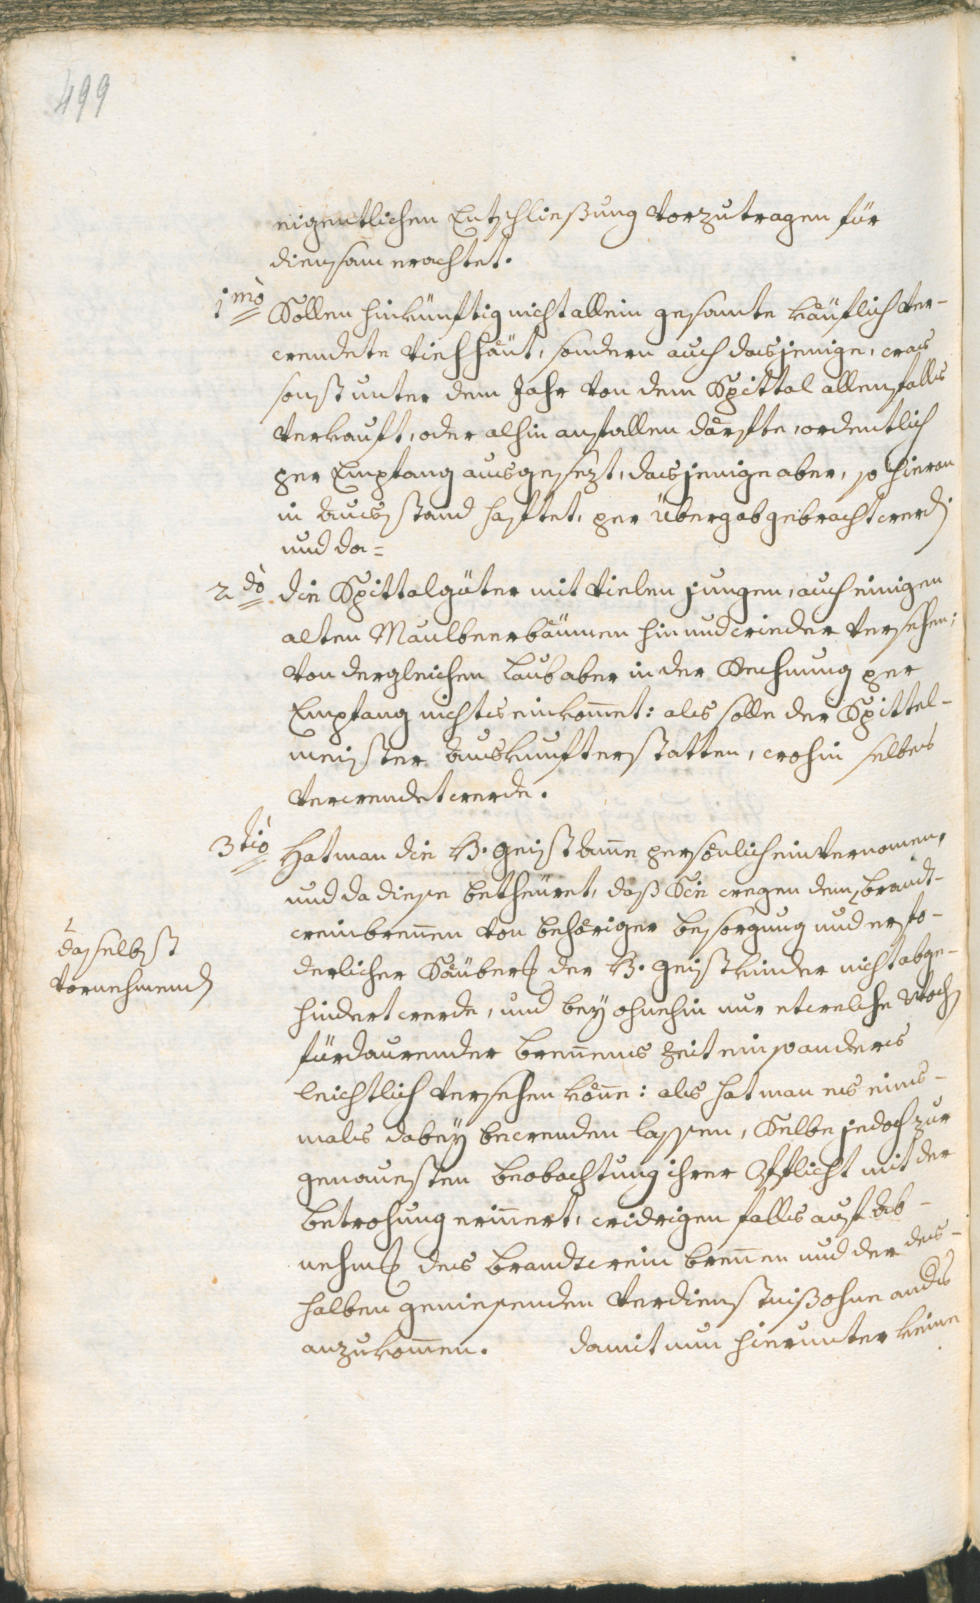 499
eigentlichen Entschließung vorzutragen für
diensam erachtet.
1mò Sollen hinkünftig nicht allein gesamte käuflich ver-
wendete Viehhäüt, sondern auch dasjenige, was
sonst unter dem Jahr von dem Spittal allenfalls
verkauft, oder alhin anfallen därfte, ordentlich
per Empfang ausgesezt, dasjenige aber, so hievon
in Ausstand haftet, per Übergab gebracht werd
und da=
2dò die Spittalgüter mit vielen jungen, auch einigen
alten Maulbeerbäumen hin und wieder versehen;
von dergleichen Laub aber in der Rechnung per
Empfang nichts einkom̄et: als solle der Spittel-
meister Auskunft erstatten, wohin selbes
verwendet werde.
3tiò Hat man die H. Geist Am̄e persönlich einvernomen,
und da diese betheüret, daß Sie wegen dem Brandt-
weinbren̄en von behöriger besorgung und erfo-
derlicher Säuber der H. Geist Kinder nicht abge-
hindert werde, und bey ohnehin nur etwelche Woch
fürdaurender bren̄ens Zeit ein so anderes
leichtlich versehen kön̄e: als hat man es eins-
mals dabey bewenden lassen, Selbe jedoch zur
genauesten beobachtung ihrer Pflicht mit der
betrohung erin̄ert, widrigen falls auf Ab-
nehm des brandtwein bren̄en und der des-
halben geniesenden Verdienstniß ohne anders
anzukom̄en. Damit nun hierunter keine
daselbst
vornehmend